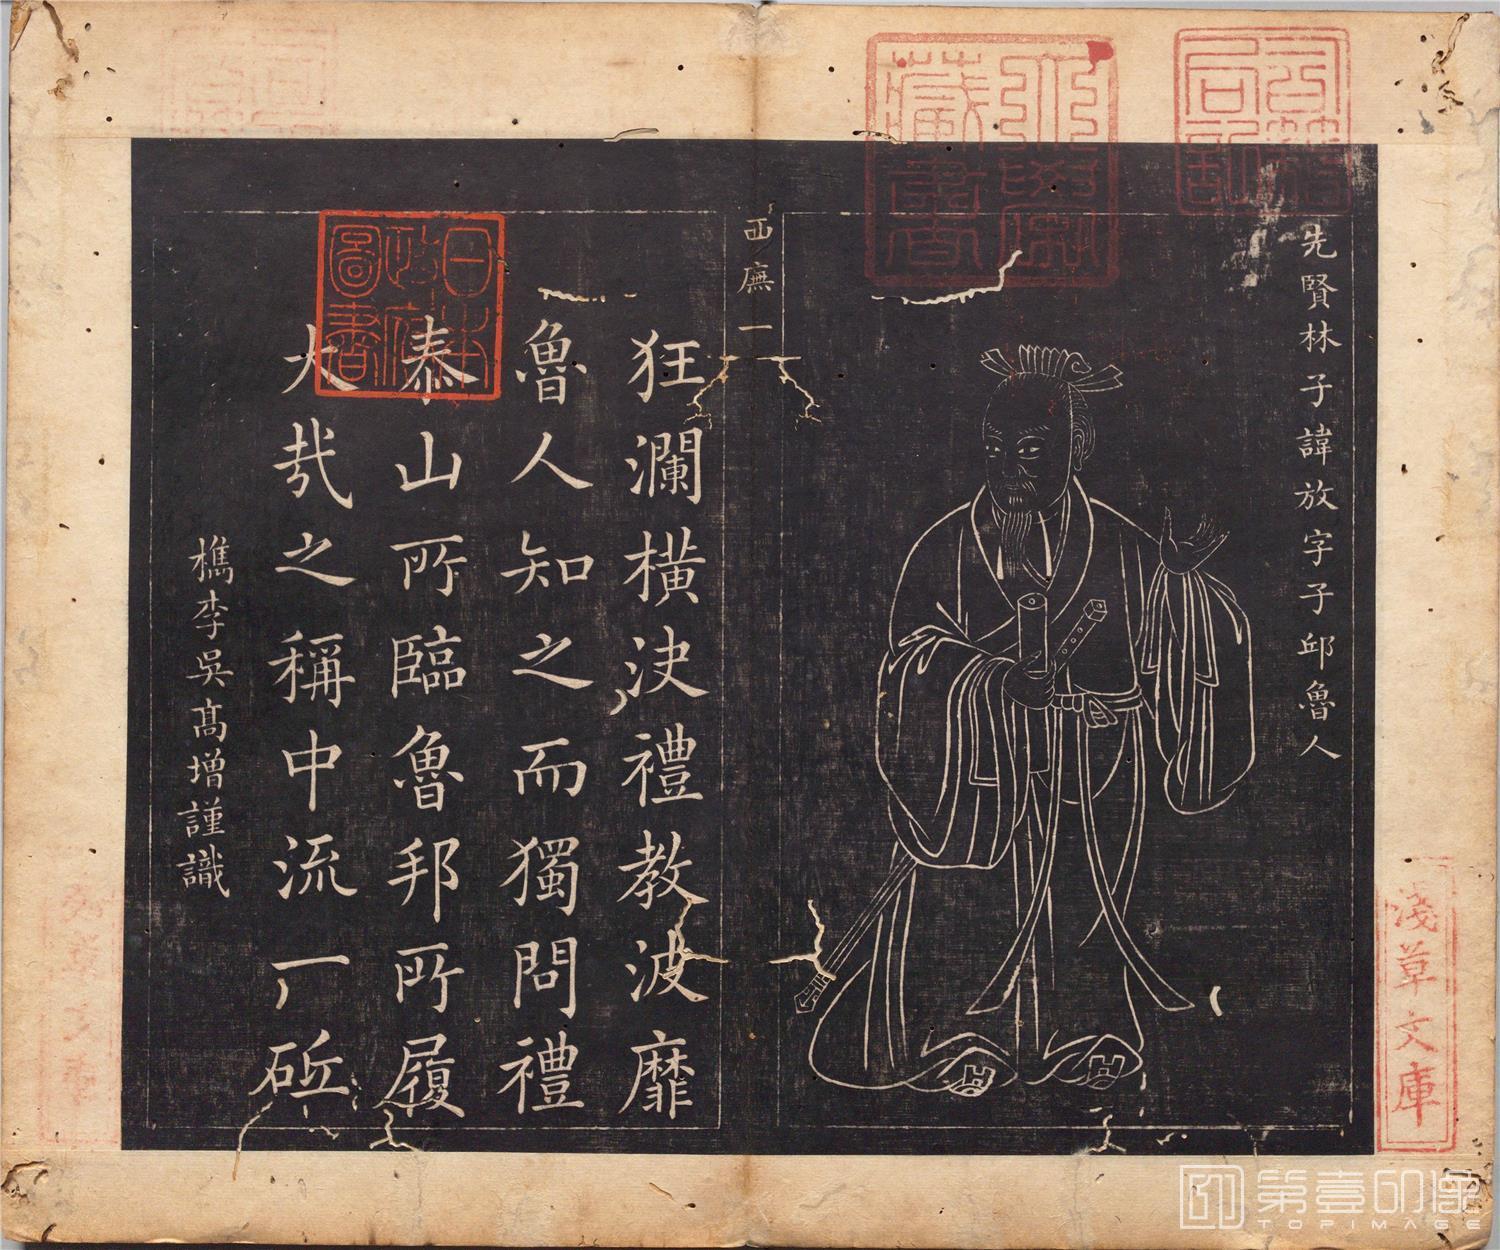 先賢林子諱放字子邱魯人
西廡一
狂瀾橫決禮教波靡
魯人知之而獨問禮
泰山所臨魯邦所履
大哉之稱中流一砥
檇李吳髙增謹識
日本政府圖書
淺草文庫
第壹印像
TOPIMAGE